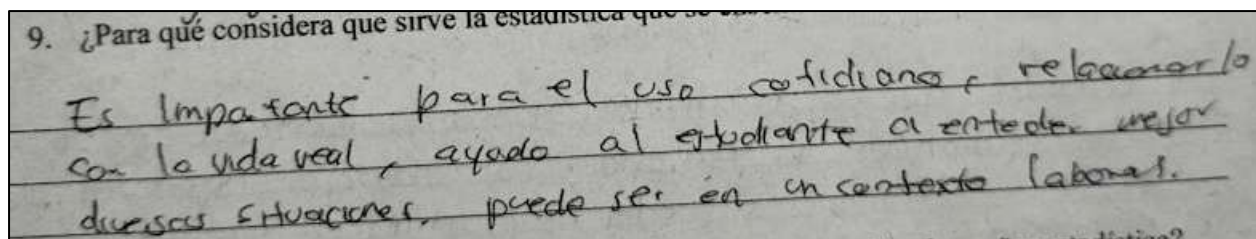 9. ¿Para qué considera que sirve la estadística que se
Es Impatante para el uso cotidiano, relacionarlo
con la vida real, ayuda al estudiante a enteder mejor
diversas situaciones, puede ser en un contexto laboral.